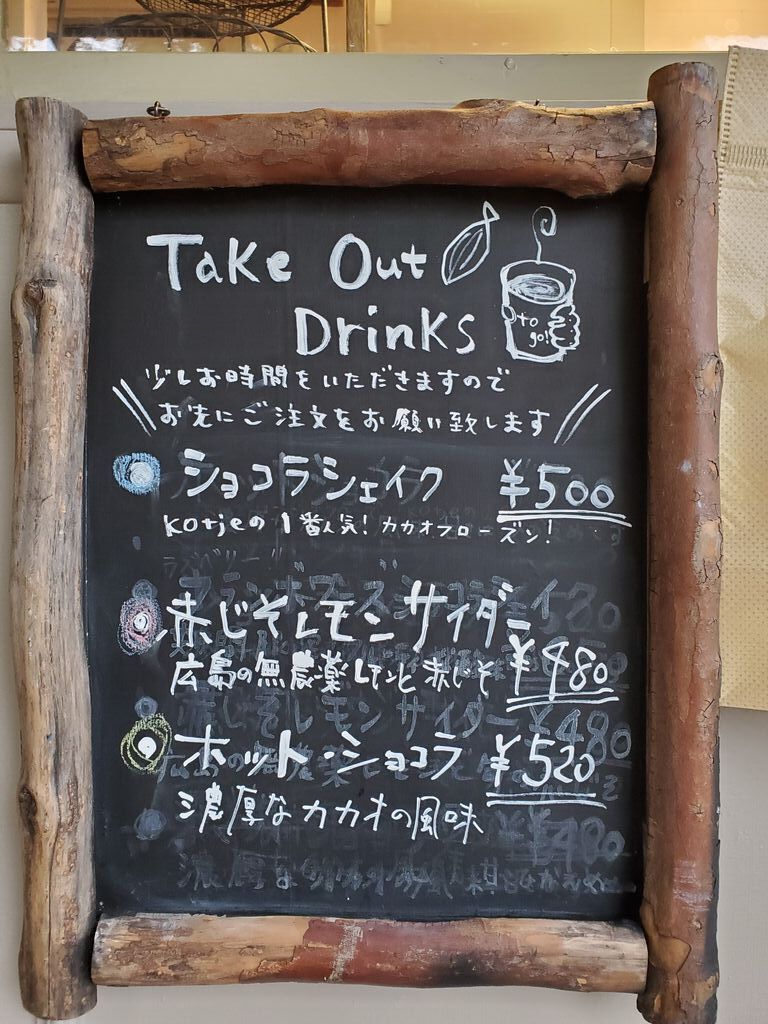 Take Out
Drinks
to go!
少しお時間をいただきますので
お先にご注文をお願い致します
ショコラシェイク ¥500
kotjeの1番人気！カカオフローズン！
赤じそレモンサイダー
広島の無農薬レモンと赤じそ ¥480
ホット・ショコラ ¥520
濃厚なカカオの風味